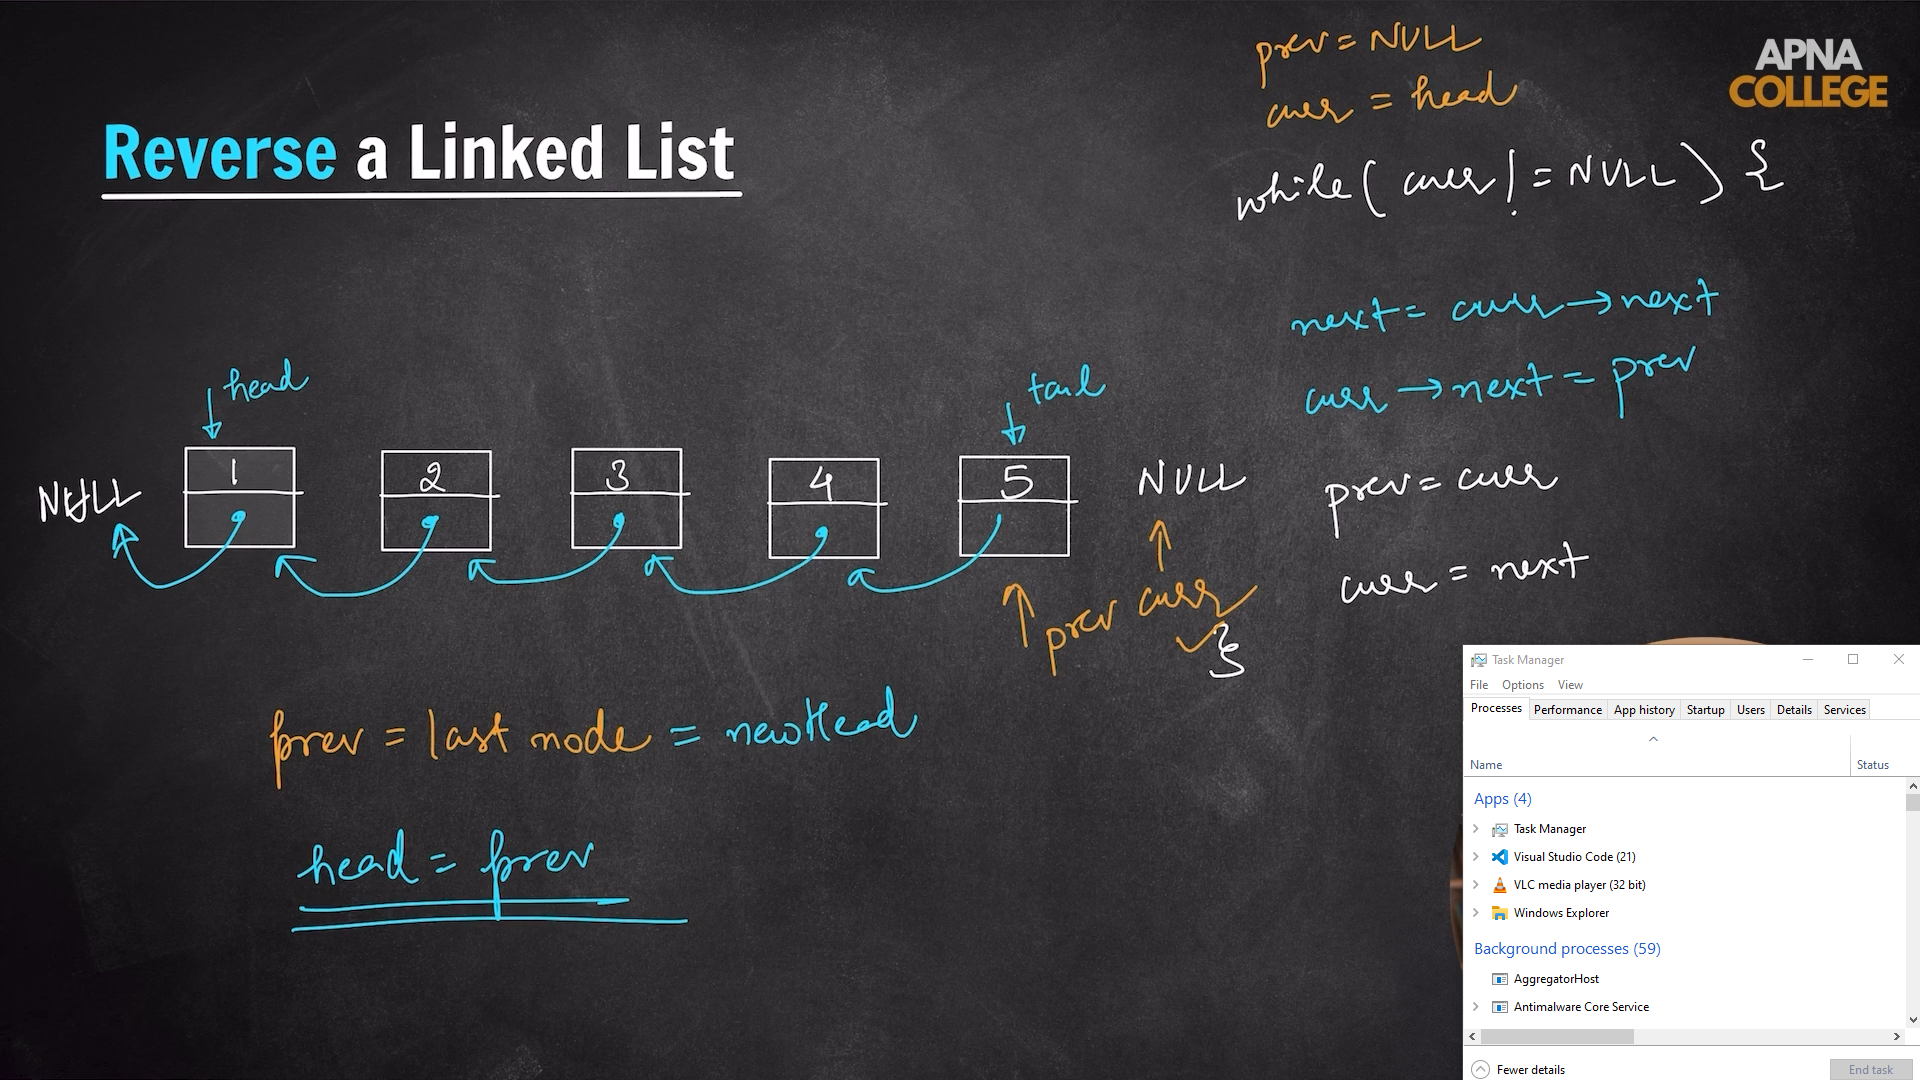 prev = NULL
curr = head
APNA
COLLEGE
Reverse a Linked List
while( curr != NULL ) {
next = curr → next
curr → next = prev
head
tail
NULL
1
2
3
4
5
NULL
prev = curr
curr = next
prev
curr
}
prev = last node = newHead
head = prev
Task Manager
File Options View
Processes Performance App history Startup Users Details Services
Name Status
Apps (4)
Task Manager
Visual Studio Code (21)
VLC media player (32 bit)
Windows Explorer
Background processes (59)
AggregatorHost
Antimalware Core Service
Fewer details
End task